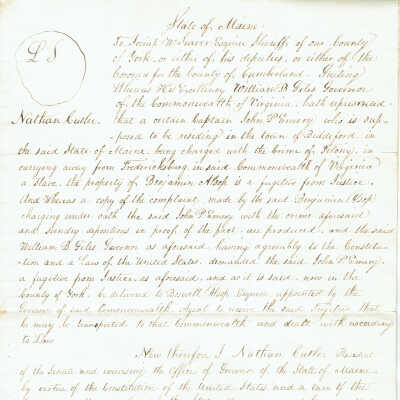 State of Maine
L S
To Josiah W Seaver Esquire Sheriff of our County
of York, or either of his deputies, or either of the
Coroners for the County of Cumberland. Greeting
Whereas His Excellency William B Giles Governor
of the Commonwealth of Virginia, hath represented
Nathan Cutler.
that a certain Captain John P Emory who is sup-
posed to be residing in the town of Biddeford, in
the said State of Maine being charged with the Crime of Felony, in
carrying away from Fredericksburg, in said Commonwealth of Virginia
a Slave, the property of Benjamin Alsop is a fugitive from Justice.
And Whereas a copy of the complaint made by the said Benjamin Alsop
charging under oath the said John P Emory with the crime aforesaid
and Sundry depositions in proof of the fact, are produced, and the said
William B. Giles Governor as aforesaid, having agreeably to the Constitu-
tion and a Law of the United States, demanded the said John P Emory,
a fugitive from Justice, as aforesaid, and as it is said, now in the
County of York, be delivered to Boswell Alsop Esquire appointed by the
Governor of said Commonwealth, Agent to receive the said Fugitive that
he may be transported to that Commonwealth and dealt with according
to Law
Now therefore I Nathan Cutler President
of the Senate and exercising the Office of Governor of the State of Maine
by virtue of the Constitution of the United States and a Law of the